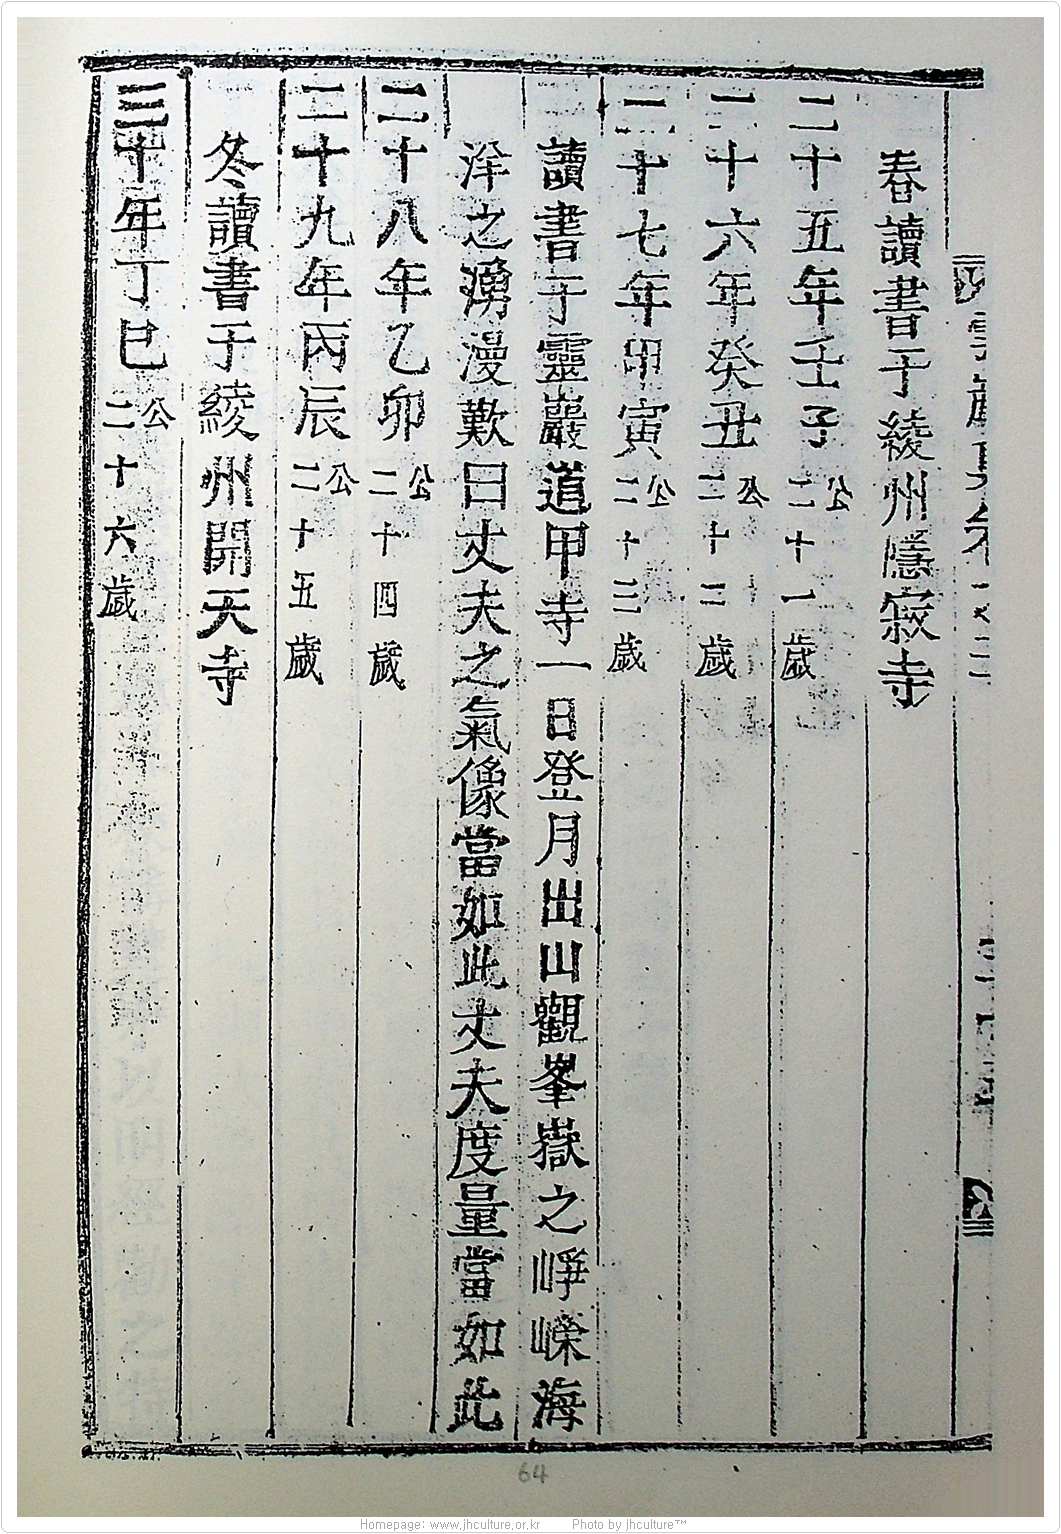 春讀書于綾州隱寂寺
二十五年壬子公二十一歲
二十六年癸丑公二十二歲
二十七年甲寅公二十三歲
讀書于靈巖道甲寺一日登月出山觀峯嶽之崢嶸海
洋之湧漫歎曰丈夫之氣像當如此丈夫度量當如此
二十八年乙卯公二十四歲
二十九年丙辰公二十五歲
冬讀書于綾州開天寺
三十年丁巳公二十六歲
64
Homepage: www.jhculture.or.kr Photo by jhculture™